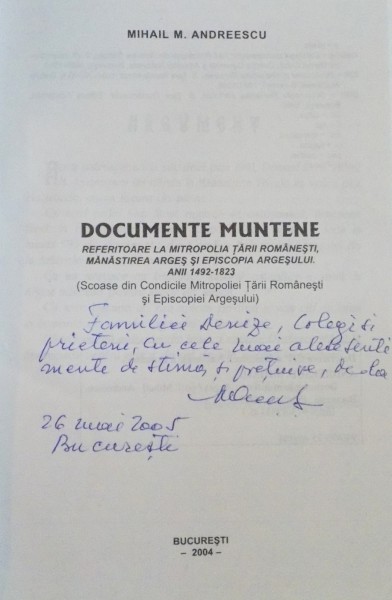 MIHAIL M. ANDREESCU
DOCUMENTE MUNTENE
REFERITOARE LA MITROPOLIA ȚĂRII ROMÂNEȘTI,
MÂNĂSTIREA ARGEȘ ȘI EPISCOPIA ARGEȘULUI.
ANII 1492-1823
(Scoase din Condicile Mitropoliei Țării Românești
și Episcopiei Argeșului)
Familiei Denize, colegi și
prieteni, cu cele mai alese senti
mente de stimă și prețuire, de la
26 mai 2005
București
BUCUREȘTI
– 2004 –